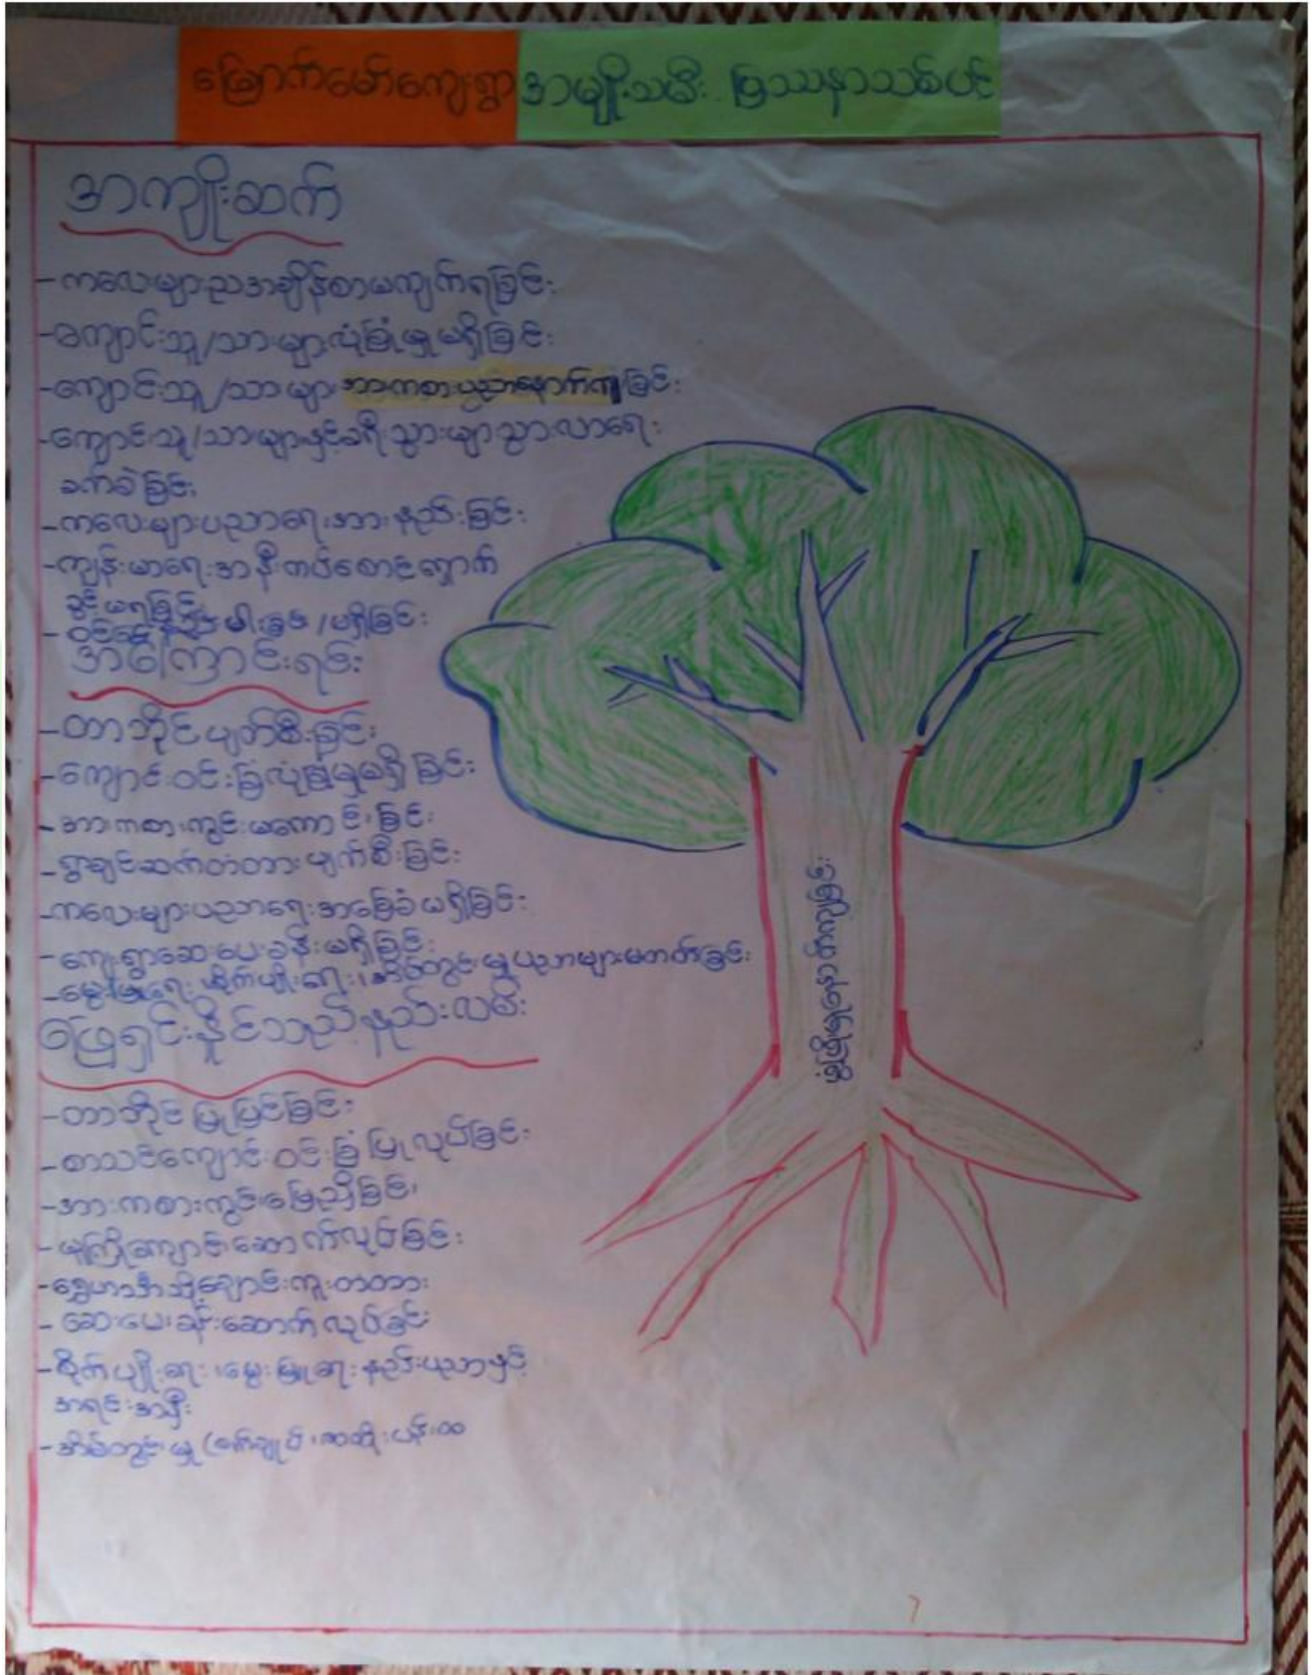 မြောက်မော်ကျေးရွာ အမျိုးသမီး ပြဿနာသစ်ပင်
အကျိုးဆက်
-ကလေးများညအချိန်စာမကျက်ရခြင်း
-ကျောင်းသူ/သားများလုံခြုံမှုမရှိခြင်း
-ကျောင်းသူ/သားများအားကစားပညာနောက်ကျခြင်း
-ကျောင်းသူ/သားများနှင့်ခရီးသွားများသွားလာရေး
ခက်ခဲခြင်း
-ကလေးများပညာရေးအားနည်းခြင်း
-ကျန်းမာရေးအနီးကပ်စောင့်ရှောက်
ခွင့်မရခြင်း
-ဝင်ငွေနည်းပါးခြင်း/မရှိခြင်း
အကြောင်းရင်း
-တာဘိုင်ပျက်စီးခြင်း
-ကျောင်းဝင်းခြံလုံခြုံမှုမရှိခြင်း
-အားကစားကွင်းမကောင်းခြင်း
-ရွာချင်းဆက်တံတားပျက်စီးခြင်း
-ကလေးများပညာရေးအခြေခံမရှိခြင်း
-ကျေးရွာဆေးပေးခန်းမရှိခြင်း
-မွေးမြူရေး၊ စိုက်ပျိုးရေး၊ အိမ်တွင်းမှုပညာများမတတ်ခြင်း
ဖြေရှင်းနိုင်သည့်နည်းလမ်း
-တာဘိုင်ပြုပြင်ခြင်း
-စာသင်ကျောင်းဝင်းခြံပြုလုပ်ခြင်း
-အားကစားကွင်းမြေညှိခြင်း
-မူကြိုကျောင်းဆောက်လုပ်ခြင်း
-ရွှေဟင်္သာသို့ချောင်းကူးတံတား
-ဆေးပေးခန်းဆောက်လုပ်ခြင်း
-စိုက်ပျိုးရေး၊ မွေးမြူရေးနည်းပညာနှင့်
အရင်းအနှီး
-အိမ်တွင်းမှု (စက်ချုပ်၊
ဖွံ့ဖြိုးမှုနောက်ကျခြင်း
7